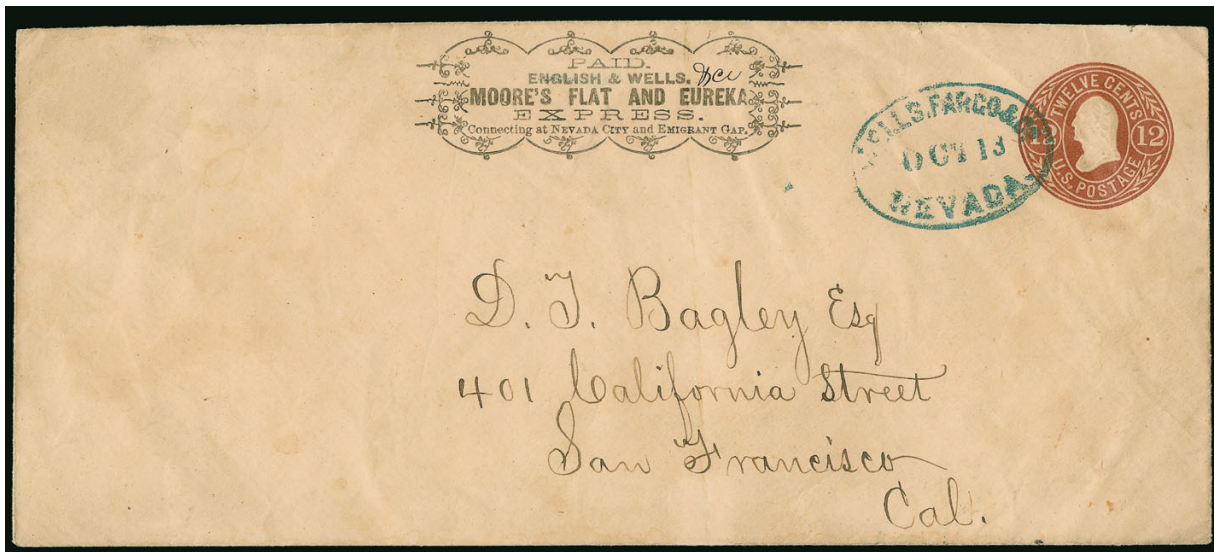 PAID.
ENGLISH & WELLS.
MOORE'S FLAT AND EUREKA
EXPRESS.
Connecting at NEVADA CITY and EMIGRANT GAP.
WELLS, FARGO &
OCT 13
NEVADA.
TWELVE CENTS
12 12
U.S. POSTAGE
D. T. Bagley Esq
401 California Street
San Francisco
Cal.